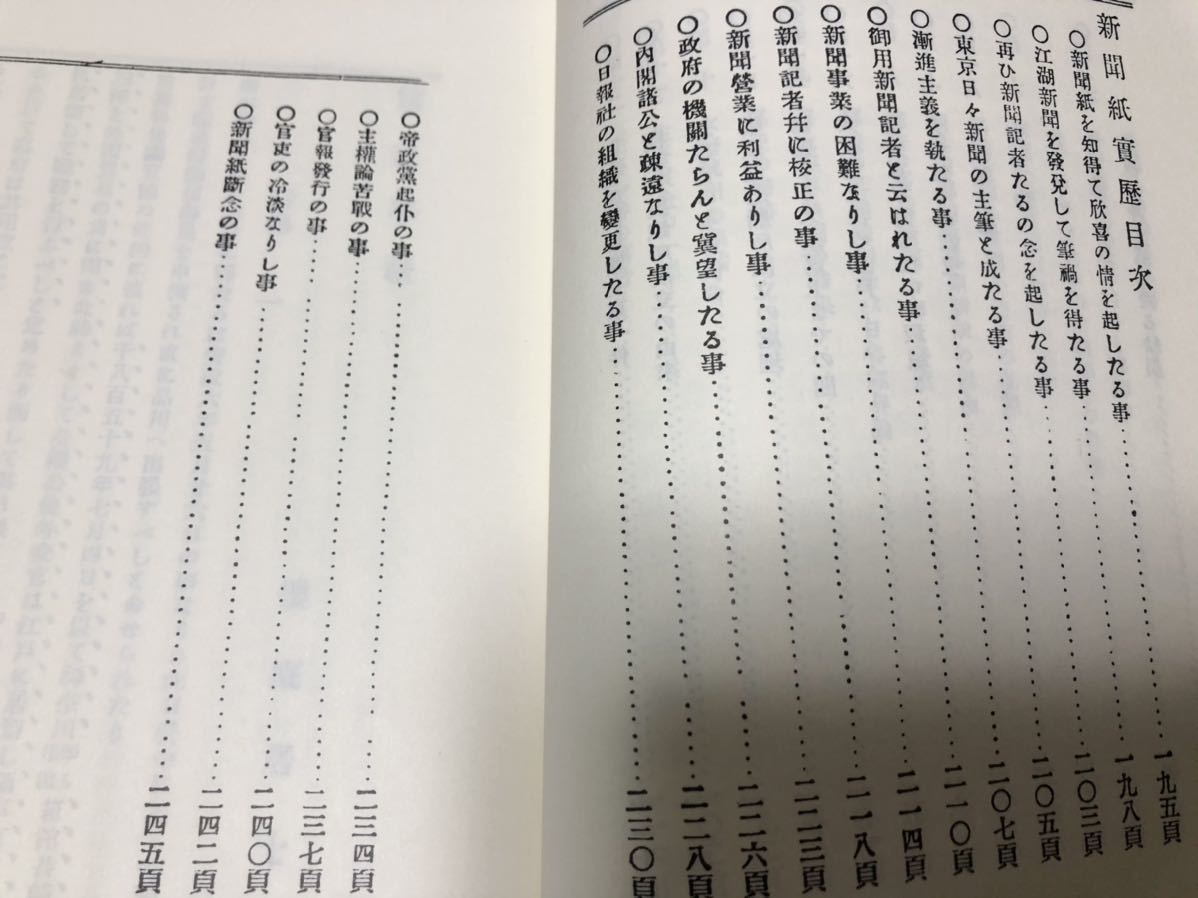 新聞紙實歷目次
〇新聞紙を知得て欣喜の情を起したる事………一九五頁
〇江湖新聞を發兌して筆禍を得たる事………一九八頁
〇再ひ新聞記者たるの念を起したる事………二〇三頁
〇東京日々新聞の主筆と成たる事………二〇五頁
〇漸進主義を執たる事………二〇七頁
〇御用新聞記者と云はれたる事………二一〇頁
〇新聞事業の困難なりし事………二一四頁
〇新聞記者幷に校正の事………二一八頁
〇新聞營業に利益ありし事………二二三頁
〇政府の機關たらんと冀望したる事………二二六頁
〇内閣諸公と疎遠なりし事………二二八頁
〇日報社の組織を變更したる事………二三〇頁
〇帝政黨起仆の事………二三四頁
〇主權論苦戰の事………二三七頁
〇官報發行の事………二四〇頁
〇官吏の冷淡なりし事………二四二頁
〇新聞紙斷念の事………二四五頁